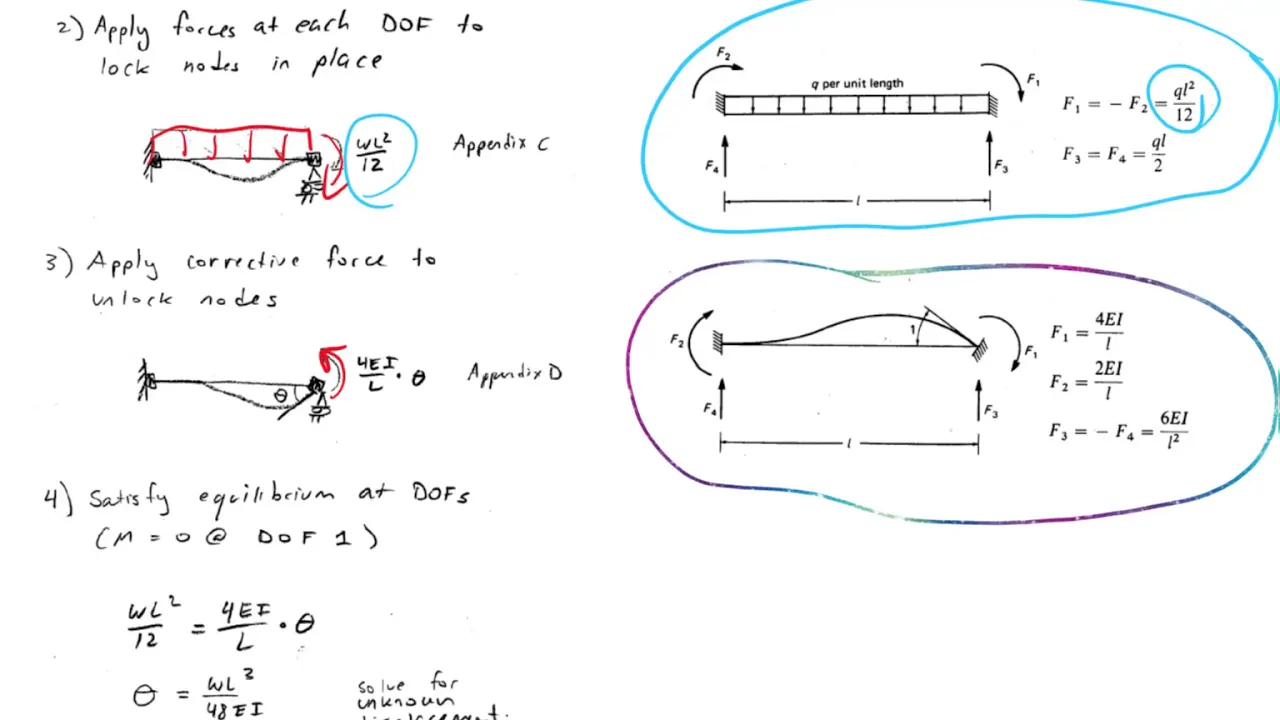 2) Apply forces at each DOF to
lock nodes in place
WL²/12
Appendix C
3) Apply corrective force to
unlock nodes
θ
4EI/L · θ
Appendix D
4) Satisfy equilibrium at DOFs
(M = 0 @ DOF 1)
WL²/12 = 4EI/L · θ
θ = WL³/48EI
solve for
unknown
displacement.
F₂
q per unit length
F₁
F₁ = − F₂ = ql²/12
F₃ = F₄ = ql/2
F₄
F₃
l
F₂
1
F₁
F₁ = 4EI/l
F₂ = 2EI/l
F₃ = − F₄ = 6EI/l²
F₄
F₃
l